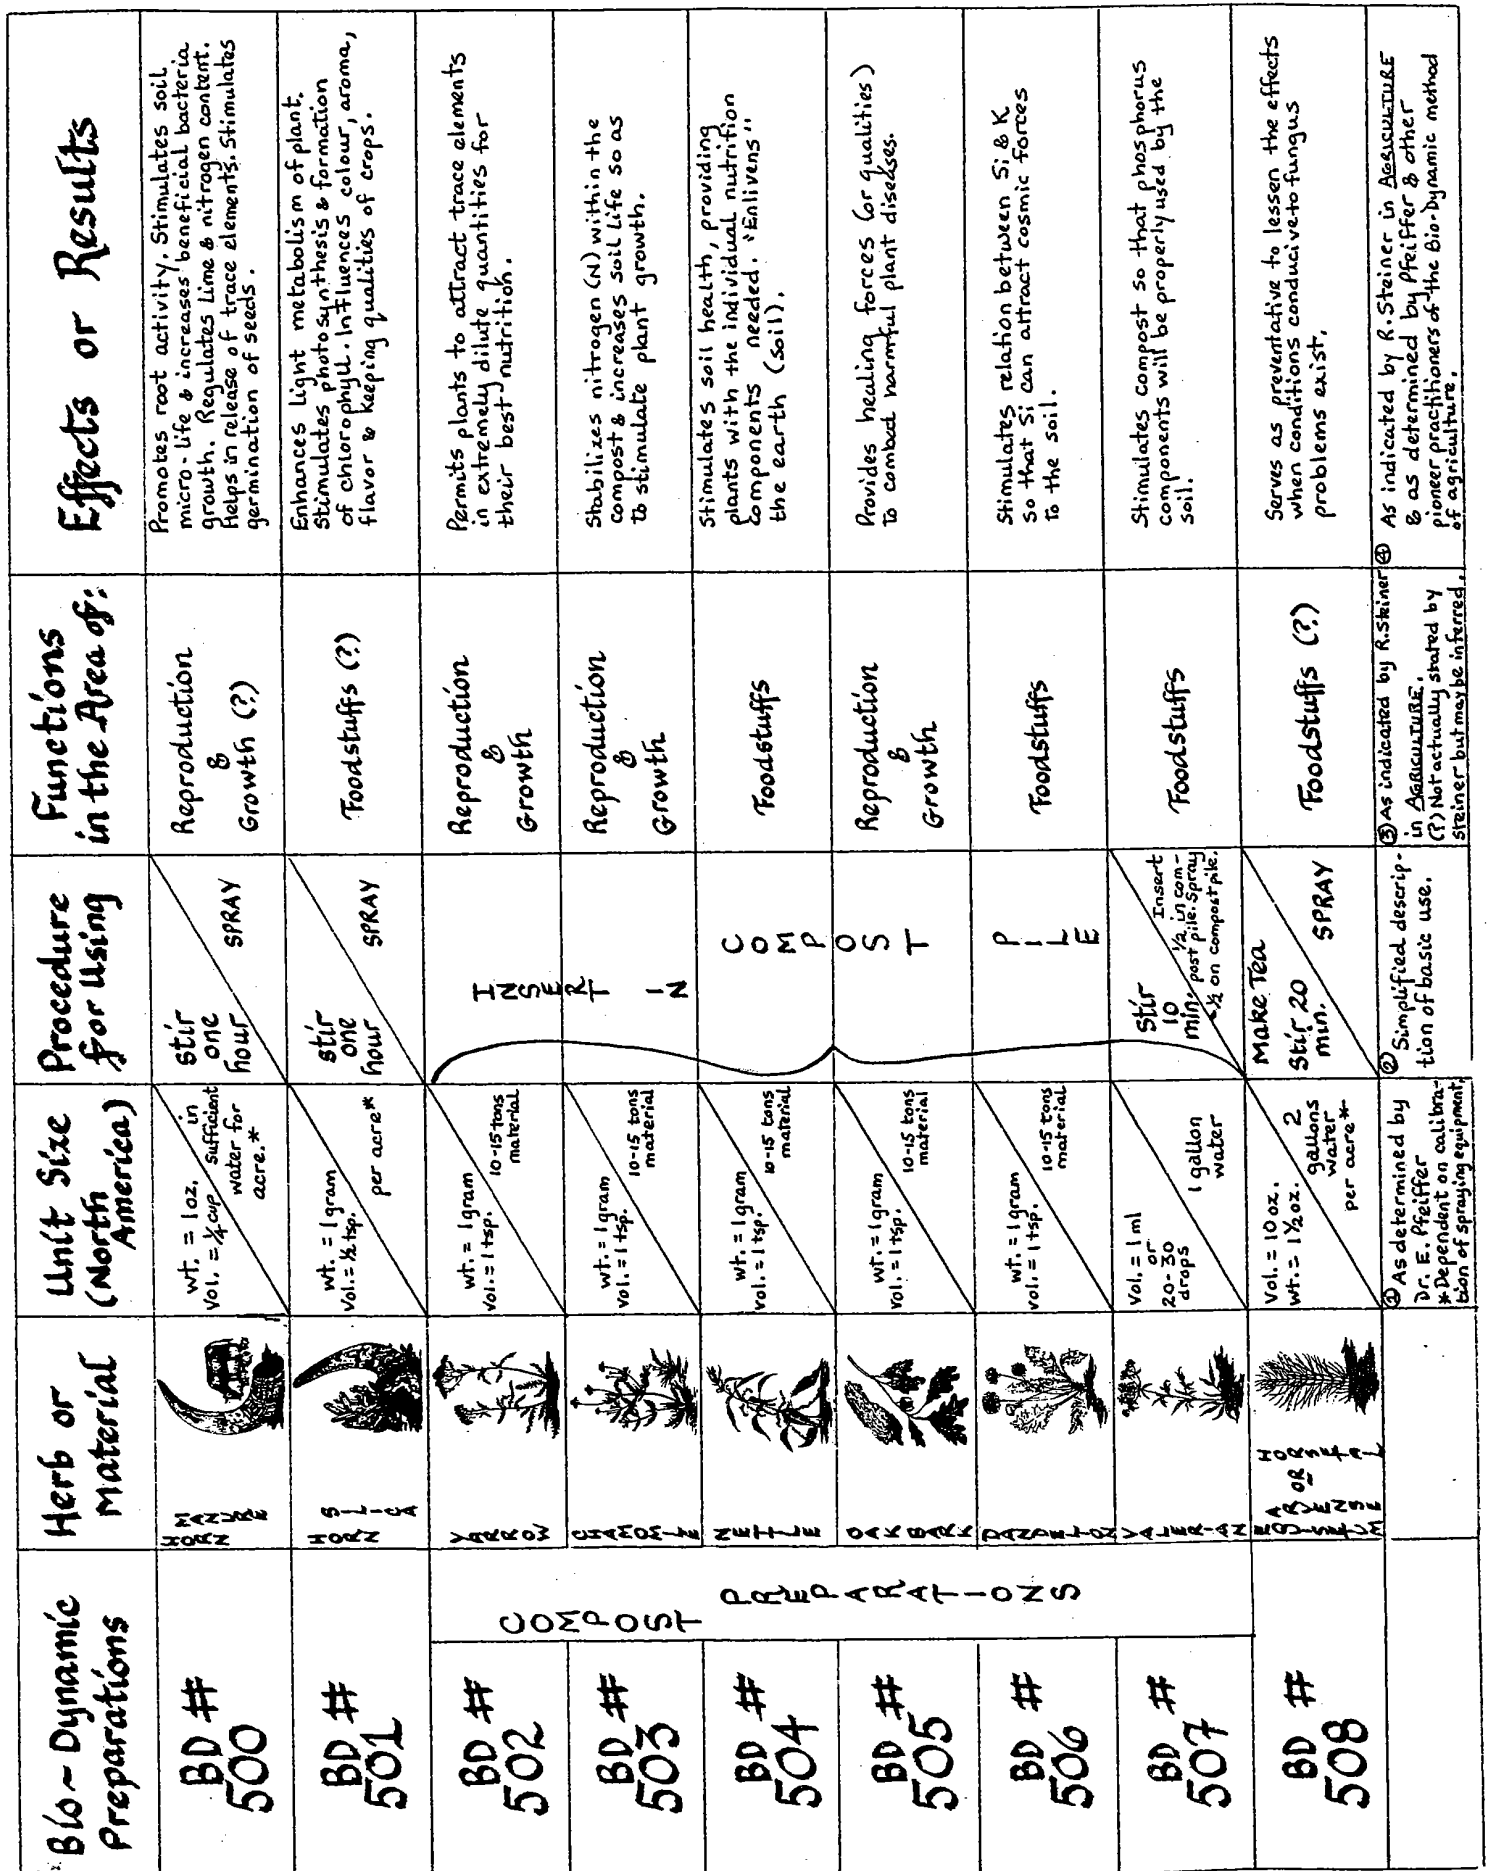 Bio~Dynamic
Preparations
Herb or
Material
Unit Size
(North
America)
Procedure
for Using
Functions
in the Area of:
Effects or Results
BD #
500
HORN
MANURE
wt. = 1 oz.
Vol. = 1/4 cup
in
sufficient
water for
acre.*
stir
one
hour
SPRAY
Reproduction
&
Growth (?)
Promotes root activity. Stimulates soil
micro-life & increases beneficial bacteria
growth. Regulates lime & nitrogen content.
Helps in release of trace elements. Stimulates
germination of seeds.
BD #
501
HORN
SILICA
wt. = 1 gram
Vol. = 1/2 tsp.
per acre*
stir
one
hour
SPRAY
Foodstuffs (?)
Enhances light metabolism of plant.
Stimulates photosynthesis & formation
of chlorophyll. Influences colour, aroma,
flavor & keeping qualities of crops.
COMPOST
PREPARATIONS
INSERT IN
COMPOST PILE
BD #
502
YARROW
wt. = 1 gram
vol. = 1 tsp.
10-15 tons
material
Reproduction
&
Growth
Permits plants to attract trace elements
in extremely dilute quantities for
their best nutrition.
BD #
503
CHAMOMILE
wt. = 1 gram
vol. = 1 tsp.
10-15 tons
material
Reproduction
&
Growth
Stabilizes nitrogen (N) within the
compost & increases soil life so as
to stimulate plant growth.
BD #
504
NETTLE
wt. = 1 gram
vol. = 1 tsp.
10-15 tons
material
Foodstuffs
Stimulates soil health, providing
plants with the individual nutrition
components needed. "Enlivens"
the earth (soil).
BD #
505
OAK BARK
wt. = 1 gram
vol. = 1 tsp.
10-15 tons
material
Reproduction
&
Growth
Provides healing forces (or qualities)
to combat harmful plant diseases.
BD #
506
DANDELION
wt. = 1 gram
vol. = 1 tsp.
10-15 tons
material
Foodstuffs
Stimulates relation between Si & K
so that Si can attract cosmic forces
to the soil.
BD #
507
VALERIAN
Vol. = 1 ml
or
20-30
drops
1 gallon
water
Stir
10
min.
Insert
1/2 in com-
post pile. Spray
1/2 on compost pile.
Foodstuffs
Stimulates compost so that phosphorus
components will be properly used by the
soil.
BD #
508
EQUISETUM
ARVENSE
OR
HORSETAIL
Vol. = 10 oz.
wt. = 1 1/2 oz.
2
gallons
water
per acre*
Make Tea
Stir 20
min.
SPRAY
Foodstuffs (?)
Serves as preventative to lessen the effects
when conditions conducive to fungus
problems exist.
① As determined by
Dr. E. Pfeiffer
*Dependent on calibra-
tion of spraying equipment.
② Simplified descrip-
tion of basic use.
③ As indicated by R. Steiner
in AGRICULTURE.
(?) Not actually stated by
Steiner but may be inferred.
④ As indicated by R. Steiner in AGRICULTURE
& as determined by Pfeiffer & other
pioneer practitioners of the Bio-Dynamic method
of agriculture.